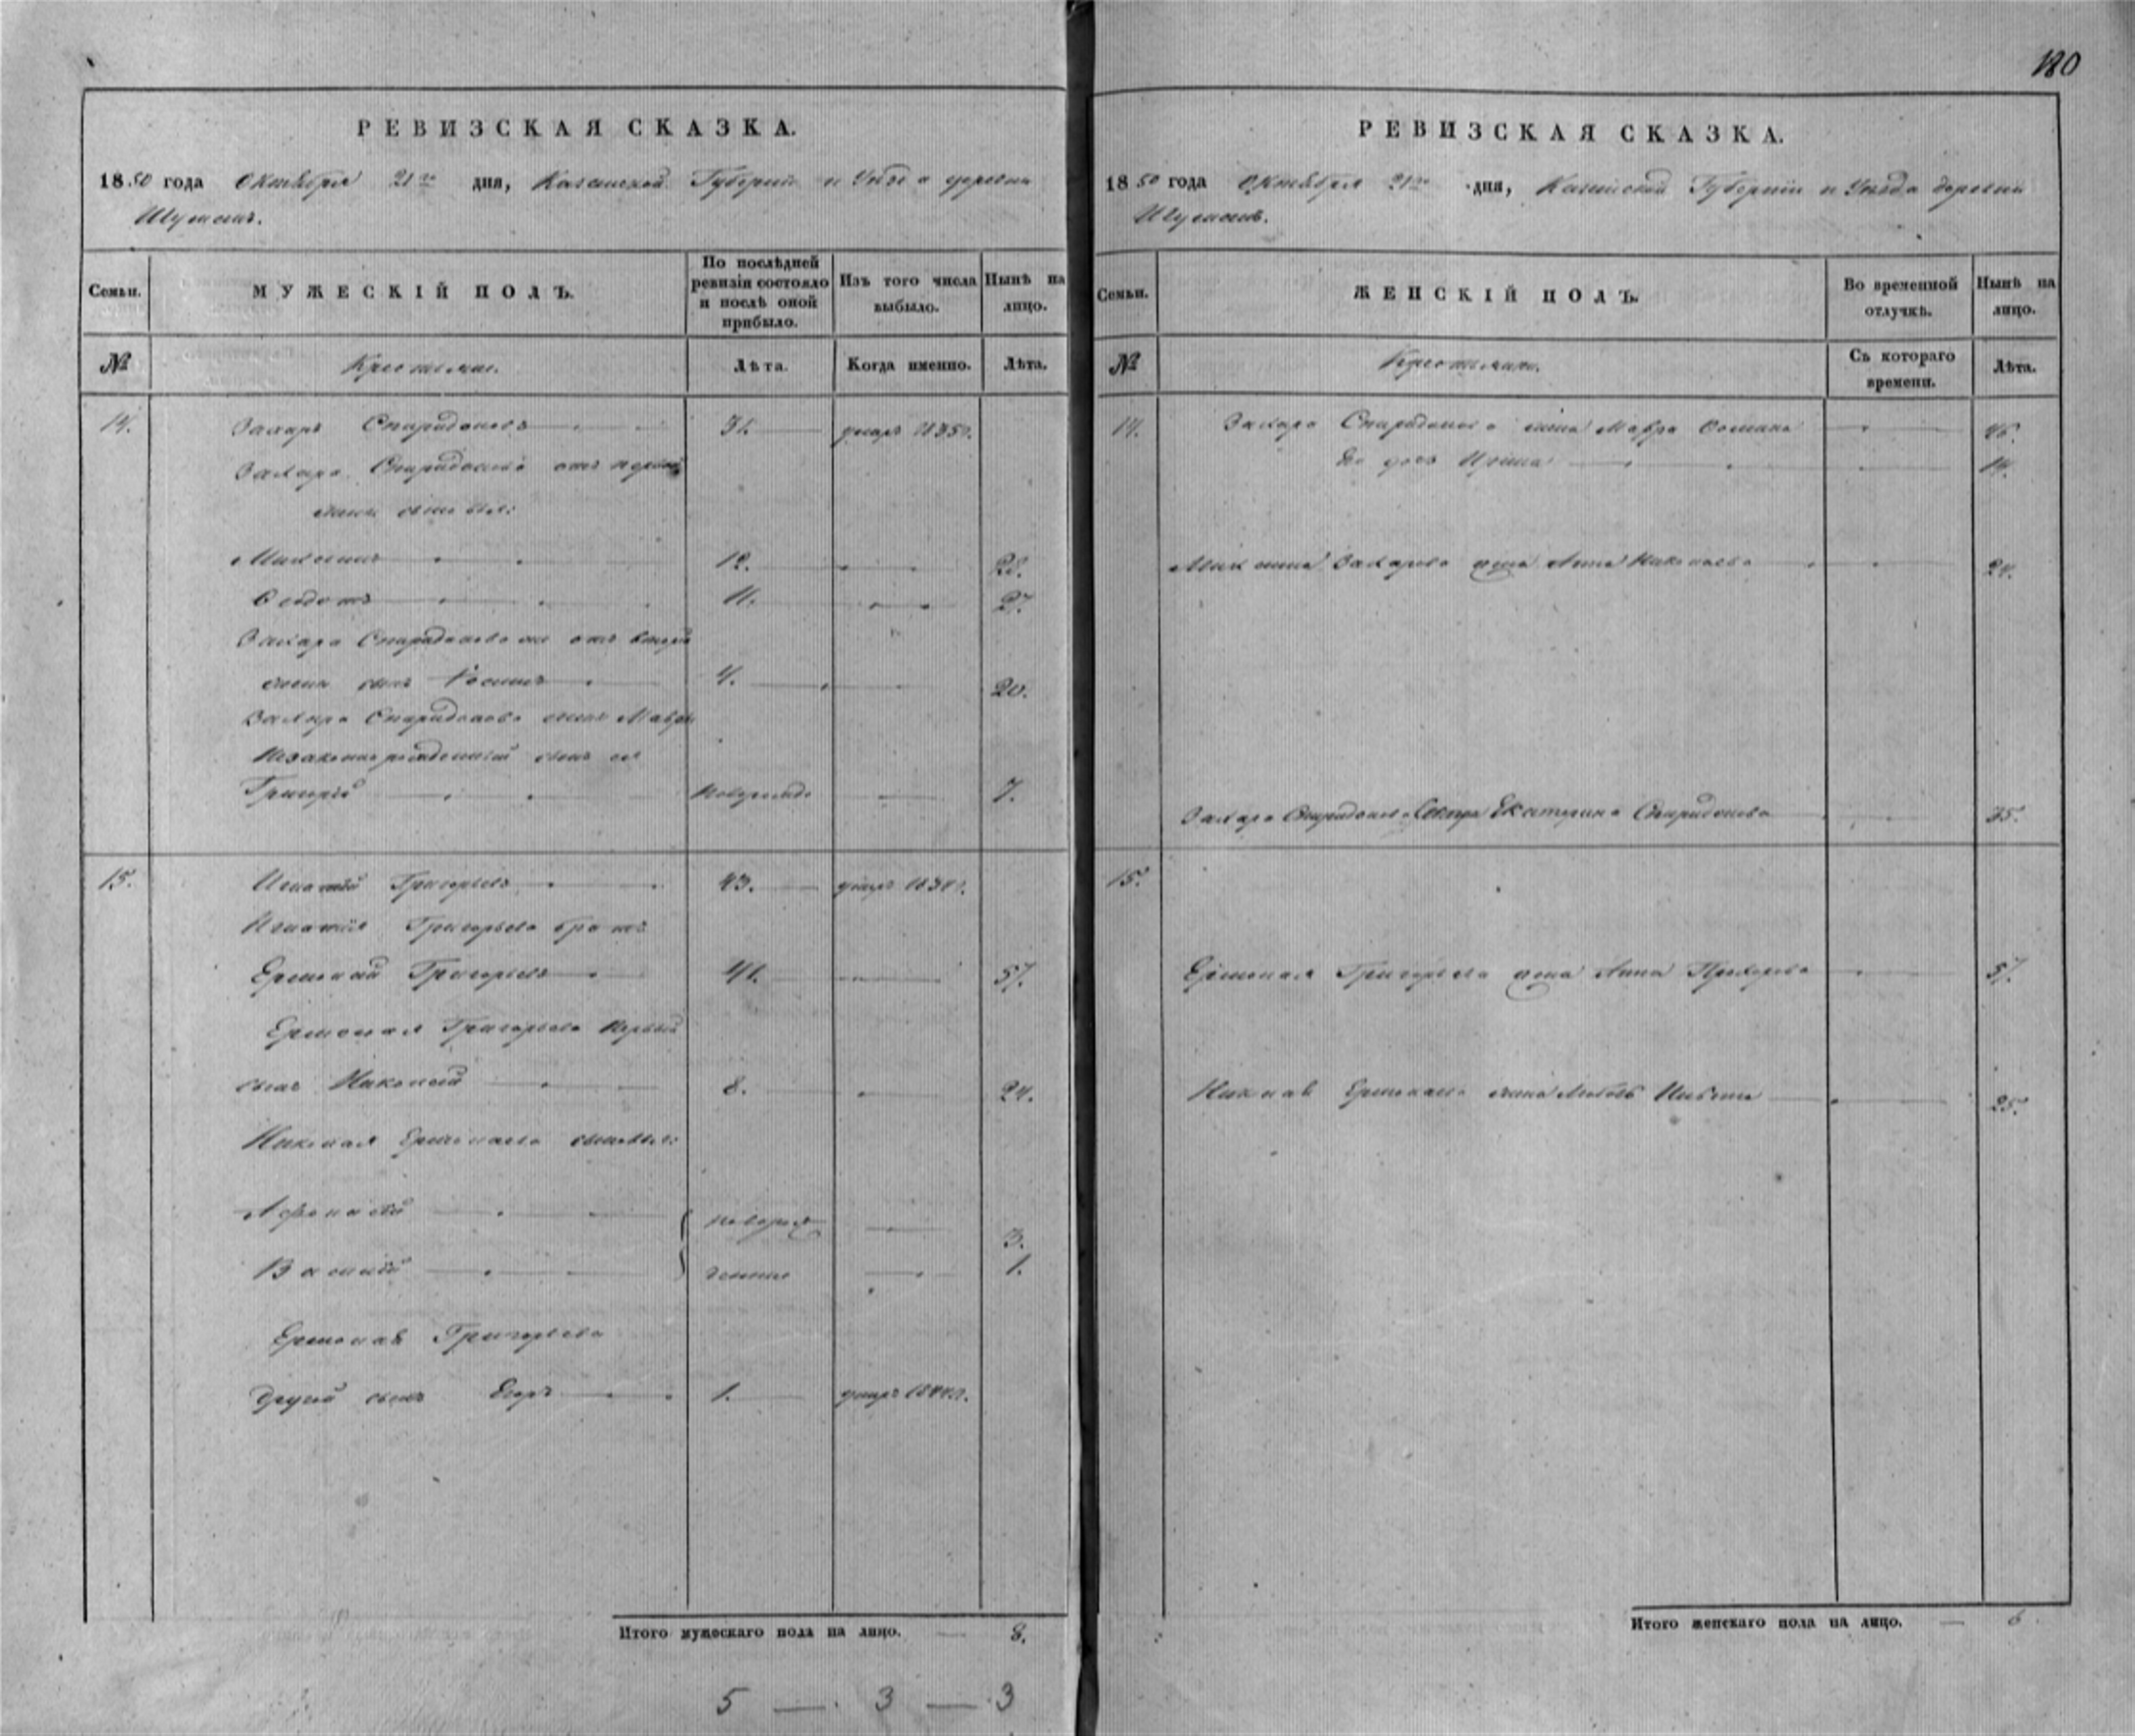 180
РЕВИЗСКАЯ СКАЗКА.
1850 года Октября 21го дня, Казанской Губернии и Уезда деревни
Семьи.
МУЖЕСКІЙ ПОЛЪ.
По послѣдней ревизіи состояло и послѣ оной прибыло.
Изъ того числа выбыло.
Нынѣ на лицо.
№
Крестьяне.
Лѣта.
Когда именно.
Лѣта.
14.
Захаръ Спиридоновъ умеръ 1835г.
Захара Спиридонова отъ первой
жены сыновья:
Максимъ 12. 28.
Федотъ 11. 27.
Захара Спиридонова же отъ второй
жены сынъ 4. 20.
Захара Спиридонова жены Мавры
незаконнорожденный сынъ ея
Григорій 7.
15.
Игнатій Григорьевъ 43. умеръ
Игнатія Григорьева братъ
Ермолай Григорьевъ 41. 57.
Ермолая Григорьева первый
сынъ Николай 8. 24.
Николая Ермолаева сыновья:
Афанасій новорож 3.
Василій денные 1.
Ермолая Григорьева
другой сынъ Егоръ 1. умеръ
Итого мужескаго пола на лицо. — 8.
5 — 3 — 3
РЕВИЗСКАЯ СКАЗКА.
1850 года Октября 21го дня, Казанской Губерніи и Уезда деревни
Семьи.
ЖЕНСКІЙ ПОЛЪ.
Во временной отлучкѣ.
Нынѣ на лицо.
№
Крестьянки.
Съ котораго времени.
Лѣта.
14.
Захара Спиридонова жена Мавра 46.
Ее дочь 14.
Максима Захарова жена Анна Николаева 24.
Захара Спиридонова сестра Екатерина Спиридонова 35.
15.
Ермолая Григорьева жена Анна Прохорова 57.
Николая Ермолаева жена Любовь 25.
Итого женскаго пола на лицо. — 6